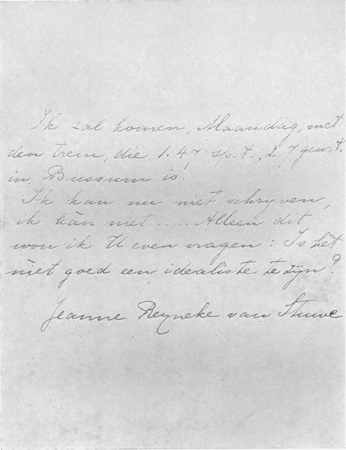 Ik zal komen, Maandag, met
den trein, die 1.47 sp.t., 2.7 gew.t.
in Bussum is.
Ik kan nu niet schrijven,
ik kàn niet..... Alleen dit
wou ik U even vragen: Is hèt
niet goed een idealiste te zijn?
Jeanne Reyneke van Stuwe